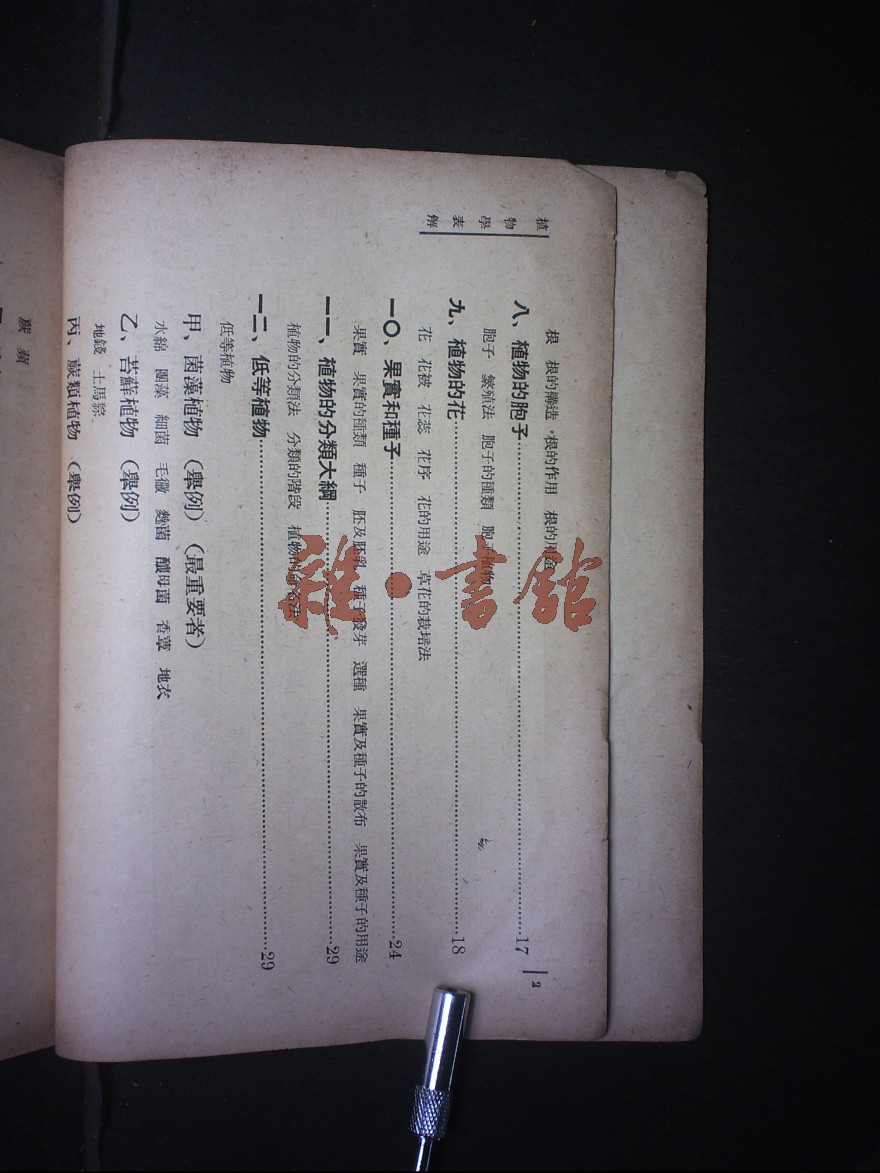 植物學表解
2
根　根的構造　根的作用　根的用途
八、植物的胞子……17
胞子　繁殖法　胞子的種類　胞子植物
九、植物的花……18
花　花被　花蕊　花序　花的用途　草花的栽培法
一〇、果實和種子……24
果實　果實的種類　種子　胚及胚乳　種子發芽　選種　果實及種子的散布　果實及種子的用途
一一、植物的分類大綱……29
植物的分類法　分類的階段　植物的命名法
一二、低等植物……29
低等植物
甲、菌藻植物（舉例）（最重要者）
水綿　團藻　細菌　毛黴　麴菌　釀母菌　香蕈　地衣
乙、苔蘚植物（舉例）
地錢　土馬騌
丙、蕨類植物（舉例）
蕨　蘋
書館